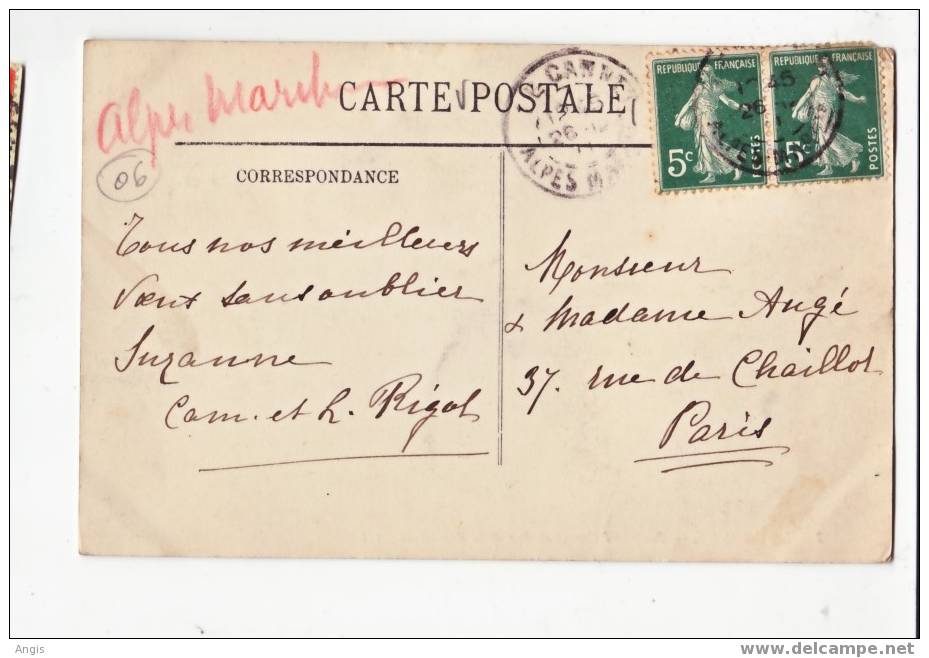 Alpes Marit
CARTE POSTALE
06
CORRESPONDANCE
Tous nos meilleurs
Vœux sans oublier
Suzanne
Cam. et h. Rigot
CANNES
12
26
ALPES MAR
REPUBLIQUE FRANÇAISE
5c
POSTES
REPUBLIQUE FRANÇAISE
5c
POSTES
45
26
ALPES M
Monsieur
& Madame Augé
37. rue de Chaillot
Paris
Angis
www.delcampe.net